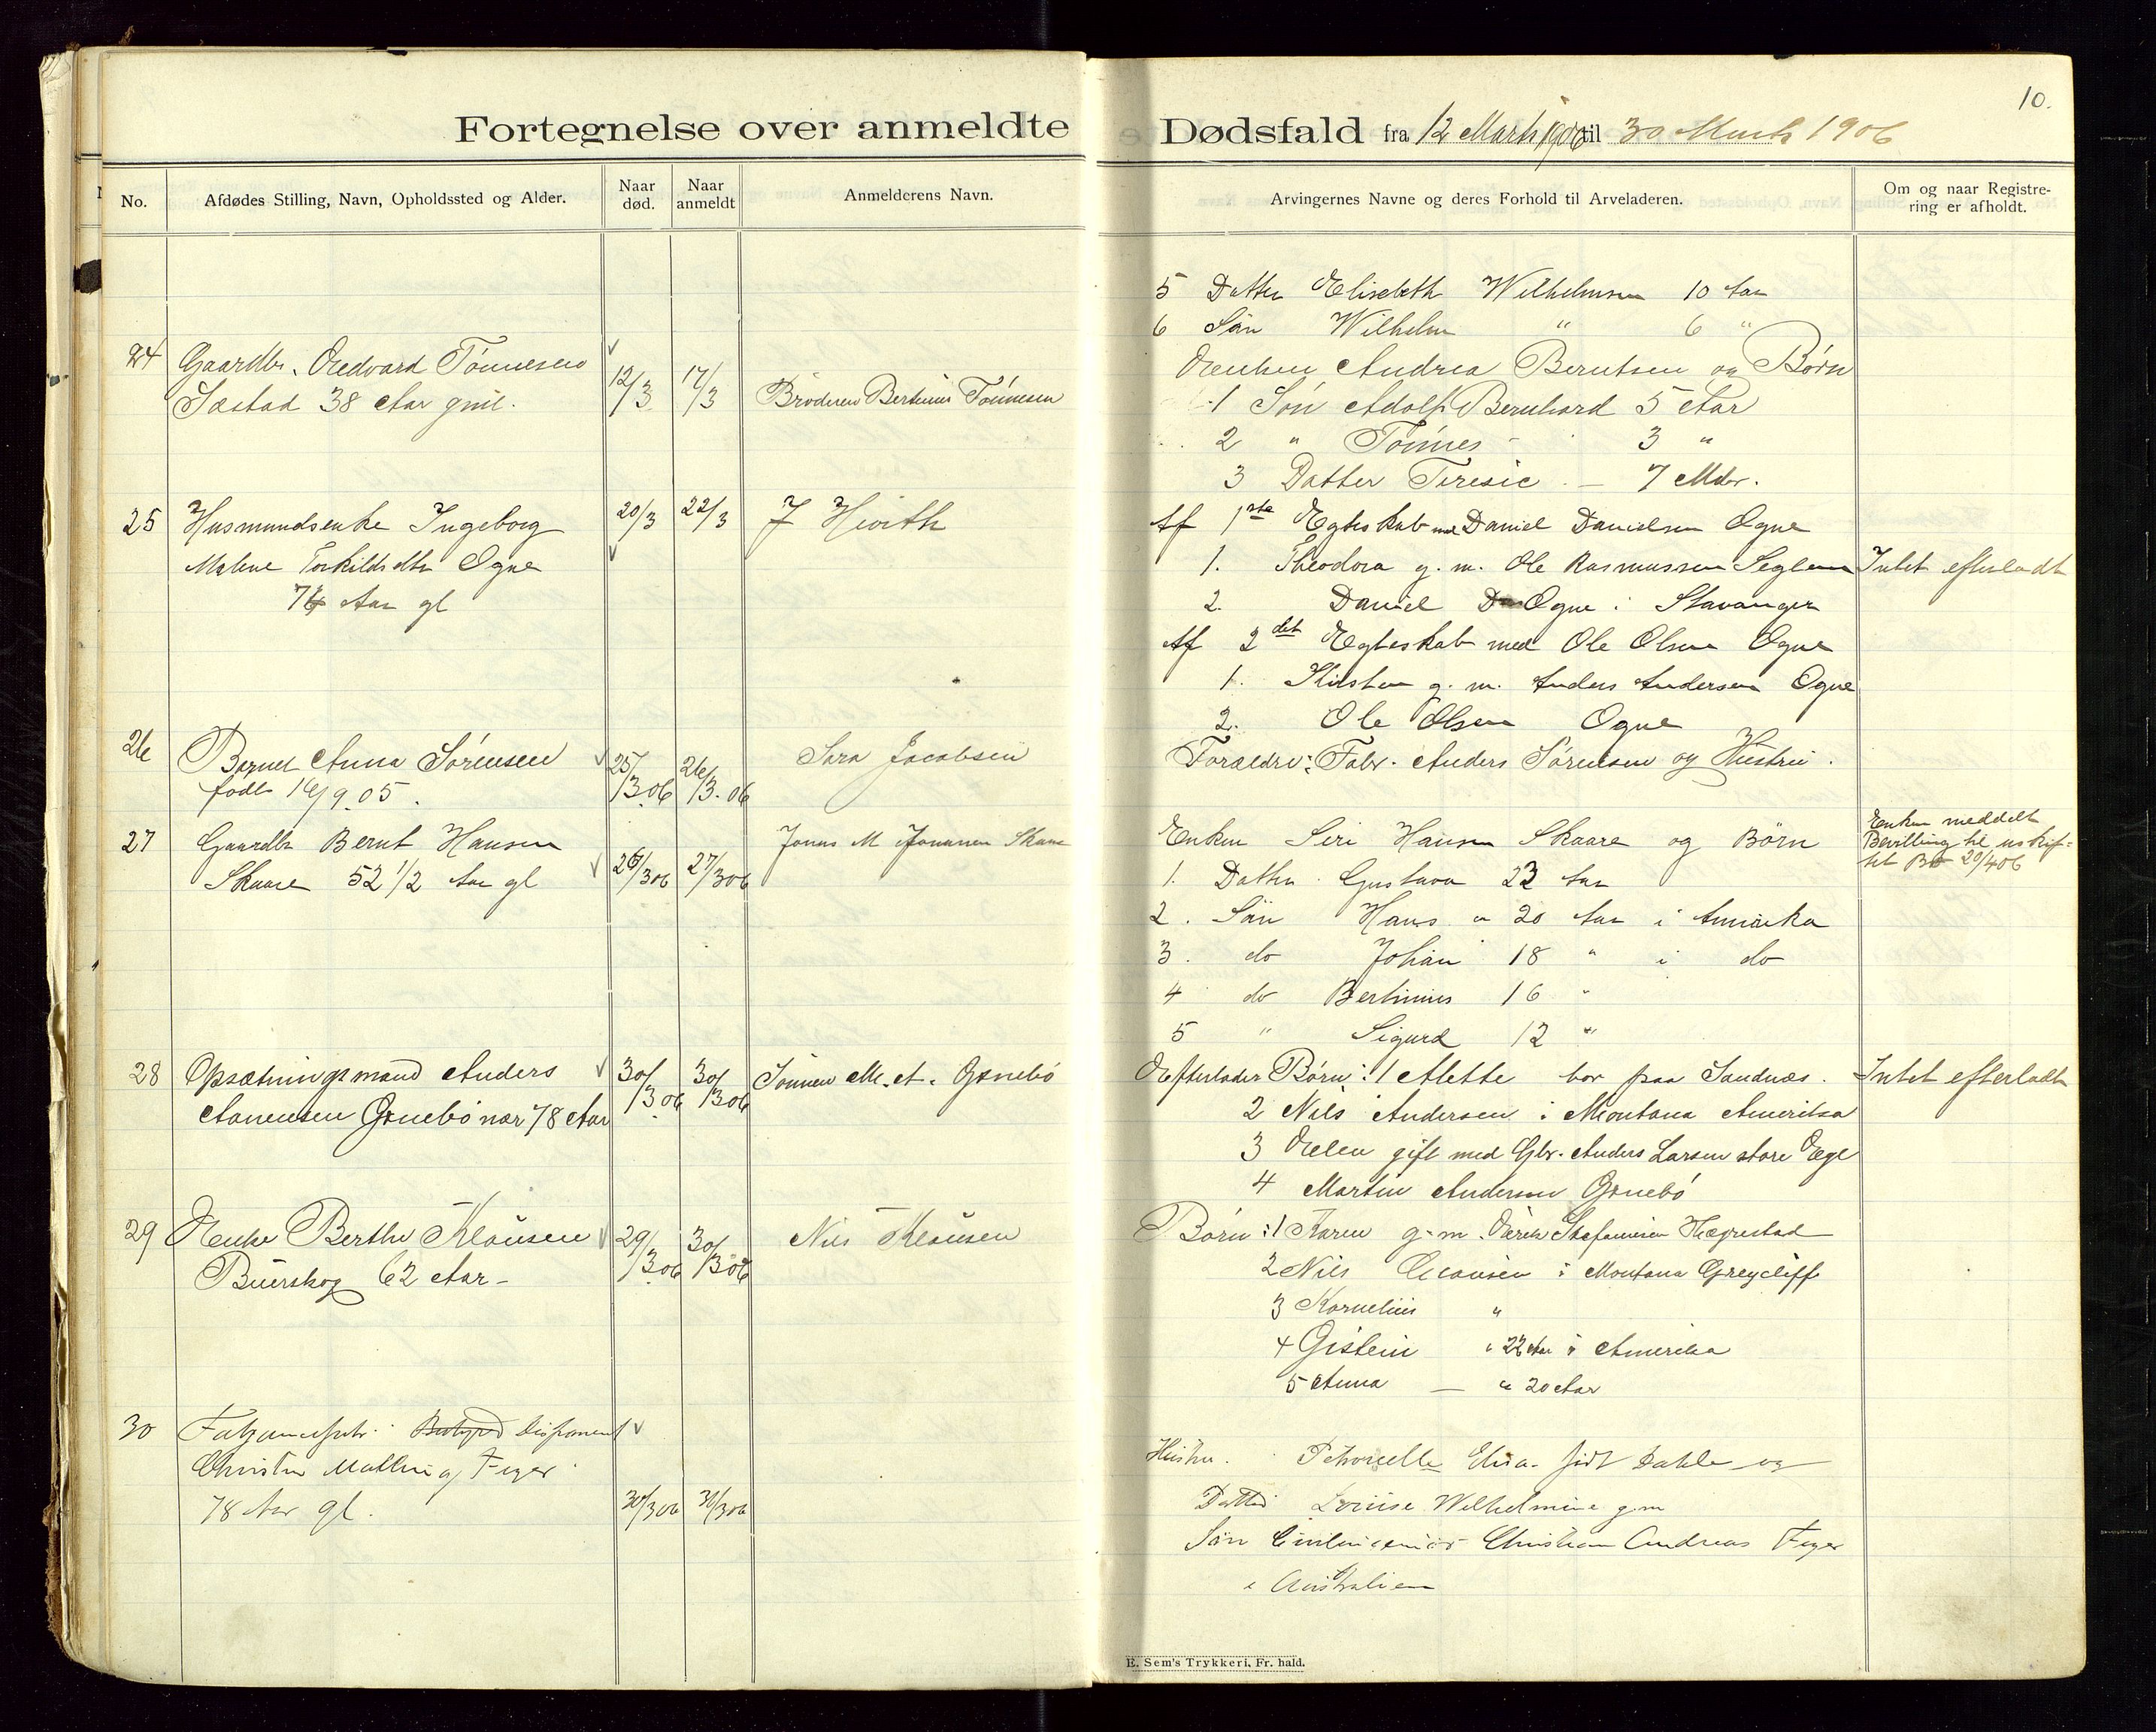 10.
Fortegnelse over anmeldte Dødsfald fra 12 Marts 1906 til 30 Marts 1906
No. Afdødes Stilling, Navn, Opholdssted og Alder. Naar død. Naar anmeldt Anmelderens Navn. Arvingernes Navne og deres Forhold til Arveladeren. Om og naar Registrering er afholdt.
5 Datter Elisebeth Wilhelmsen 10 Aar
6 Sön Wilhelm " 6 "
24 Gaardbr. Edvard Tönnesen
Sæstad 38 Aar gml.
12/3 17/3 Broderen Bertinius Tönnesen
Enken Andrea Berntsen og Börn
1 Sön Adolf Bernhard 5 Aar
2 " Tönnes - 3 "
3 Datter Teresie - 7 Mdr.
25 Husmandsenke Ingeborg
Malene Torkildsdtr Ogne
74 Aar gl
20/3 22/3
Af 1ste Egteskab med Daniel Danielsen Ogne
1. Theodora g. m. Ole Rasmussen Seglem
2. Daniel Ogne i Stavanger
Af 2det Egteskab med Ole Olsen Ogne
1. Kirsten g. m. Anders Andersen Ogne
2. Ole Olsen Ogne
Intet efterladt
26 Barnet Anna Sörensen
født 16/9.05.
25/3.06 26/3.06 Sara Jacobsen
Forældre: Fabr. Anders Sörensen og Hustru.
27 Gaardbr Bernt Hansen
Skaare 52 1/2 Aar gl
26/3 06 27/3 06 Jonas M
Enken Siri Hansen Skaare og Börn
1. Datter Gustava 23 Aar
2. Sön Hans " 20 Aar i Amerika
3. do Johan 18 " i do
4 do Bertinius 16 "
5 " Sigurd 12 "
Enken meddelt
Bevilling til uskif-
tet Bo 20/4 06
28 Opsætningsmand Anders
Aanensen Grnebö nær 78 Aar
30/3 06 30/3 06 Sönnen M. A. Grnebö
Efterlader Börn: 1 Alette bor paa Sandnæs.
2 Nils Andersen i Montana Amerika
3 Elen gift med Gbr. Anders Larsen store Ege
4 Martin Andersen Grnebö
Intet efterladt
29 Enke Berthe Klausen
Buerskog 62 Aar-
29/3 06 30/3 06 Nils Klausen
Börn: 1 Karen g. m. Hægrestad
2 Nils Clausen i Montana Greycliff
3 Kornelius "
4 Gistein " 22 Aar i Amerika
5 Anna - " 20 Aar
30 Disponent
Christen Feyer
78 Aar gl.
30/3 06 30/3 06
Hustru. Petronelle Elisa født Dahle og
Datter Lovise Wilhelmine g. m
Sön Civilingeniör Christian Andreas Feyer
i Australien
E. Sem's Trykkeri, Fr. hald.